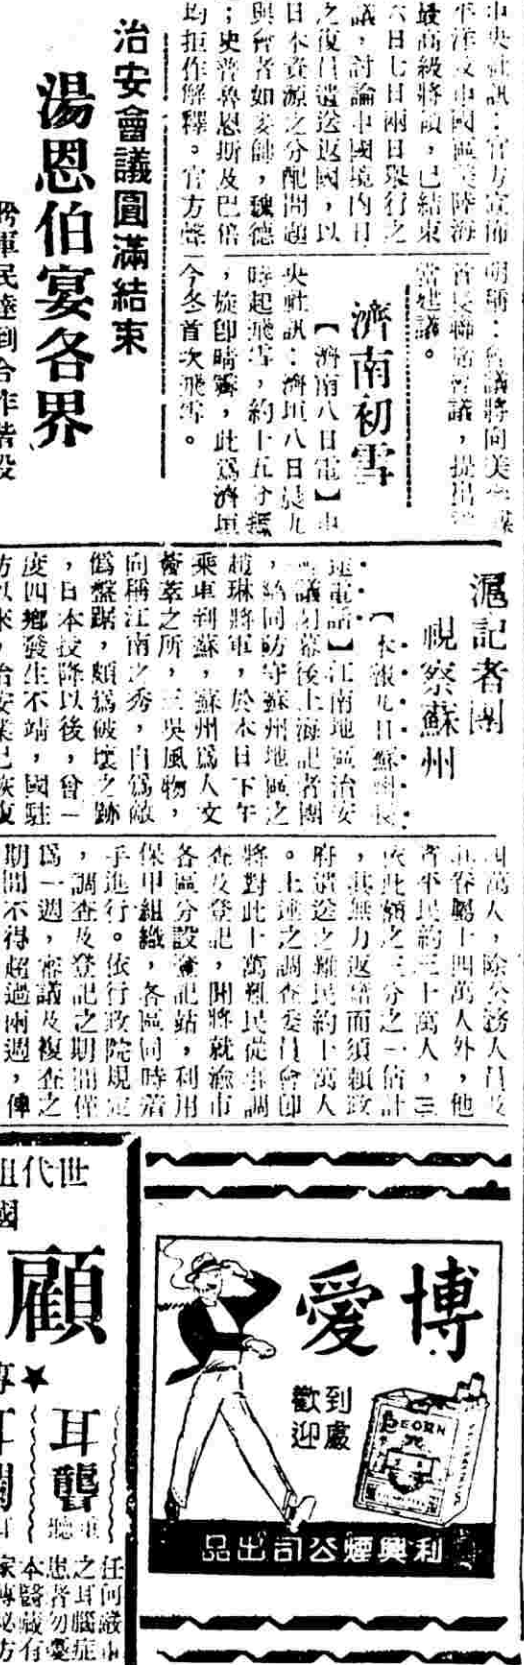 中央社訊：官方宣佈
平洋及中國區美陸海
最高級將領，已結束
六日七日兩日舉行之
議，討論中國境內日
之復員遣送返國，以
日本資源之分配問題
與會者如麥帥，魏德
；史普魯恩斯及巴倍
均拒作解釋。官方聲
明稱：會議將向美
首長聯席會議，提出
當建議。
濟南初雪
【濟南八日電】中
央社訊：濟垣八日晨九
時起飛雪，約十五分鐘
，旋即晴霽，此為濟垣
今冬首次飛雪。
治安會議圓滿結束
湯恩伯宴各界
將軍民達到合作階段
滬記者團
視察蘇州
【本報九日蘇州長
途電話】江南地區治安
會議閉幕後上海記者團
，協同防守蘇州地區之
趙琳將軍，於本日下午
乘車到蘇，蘇州為人文
薈萃之所，三吳風物，
向稱江南之秀，自為敵
僞盤踞，頗為破壞之跡
，日本投降以後，曾一
度四鄉發生不靖，國駐
防以來，治安業已恢復
四萬人，除公務人員及
眷屬十四萬人外，他
者平民約三十萬人，三
依此額之三分之一估計
，其無力返籍而須賴政
府遣送之難民約十萬人
。上述之調查委員會即
將對此十萬難民從事調
查及登記，聞將就渝市
各區分設登記站，利用
保甲組織，各區同時着
手進行。依行政院規定
，調查及登記之期間僅
為一週，審議及複查之
期間不得超過兩週，俾
世代祖
國
顧
專
耳聾
重聽
任何嚴重
之耳腦症
患者勿憂
本醫藏有
家傳秘方
博愛
到處
歡迎
利興煙公司出品